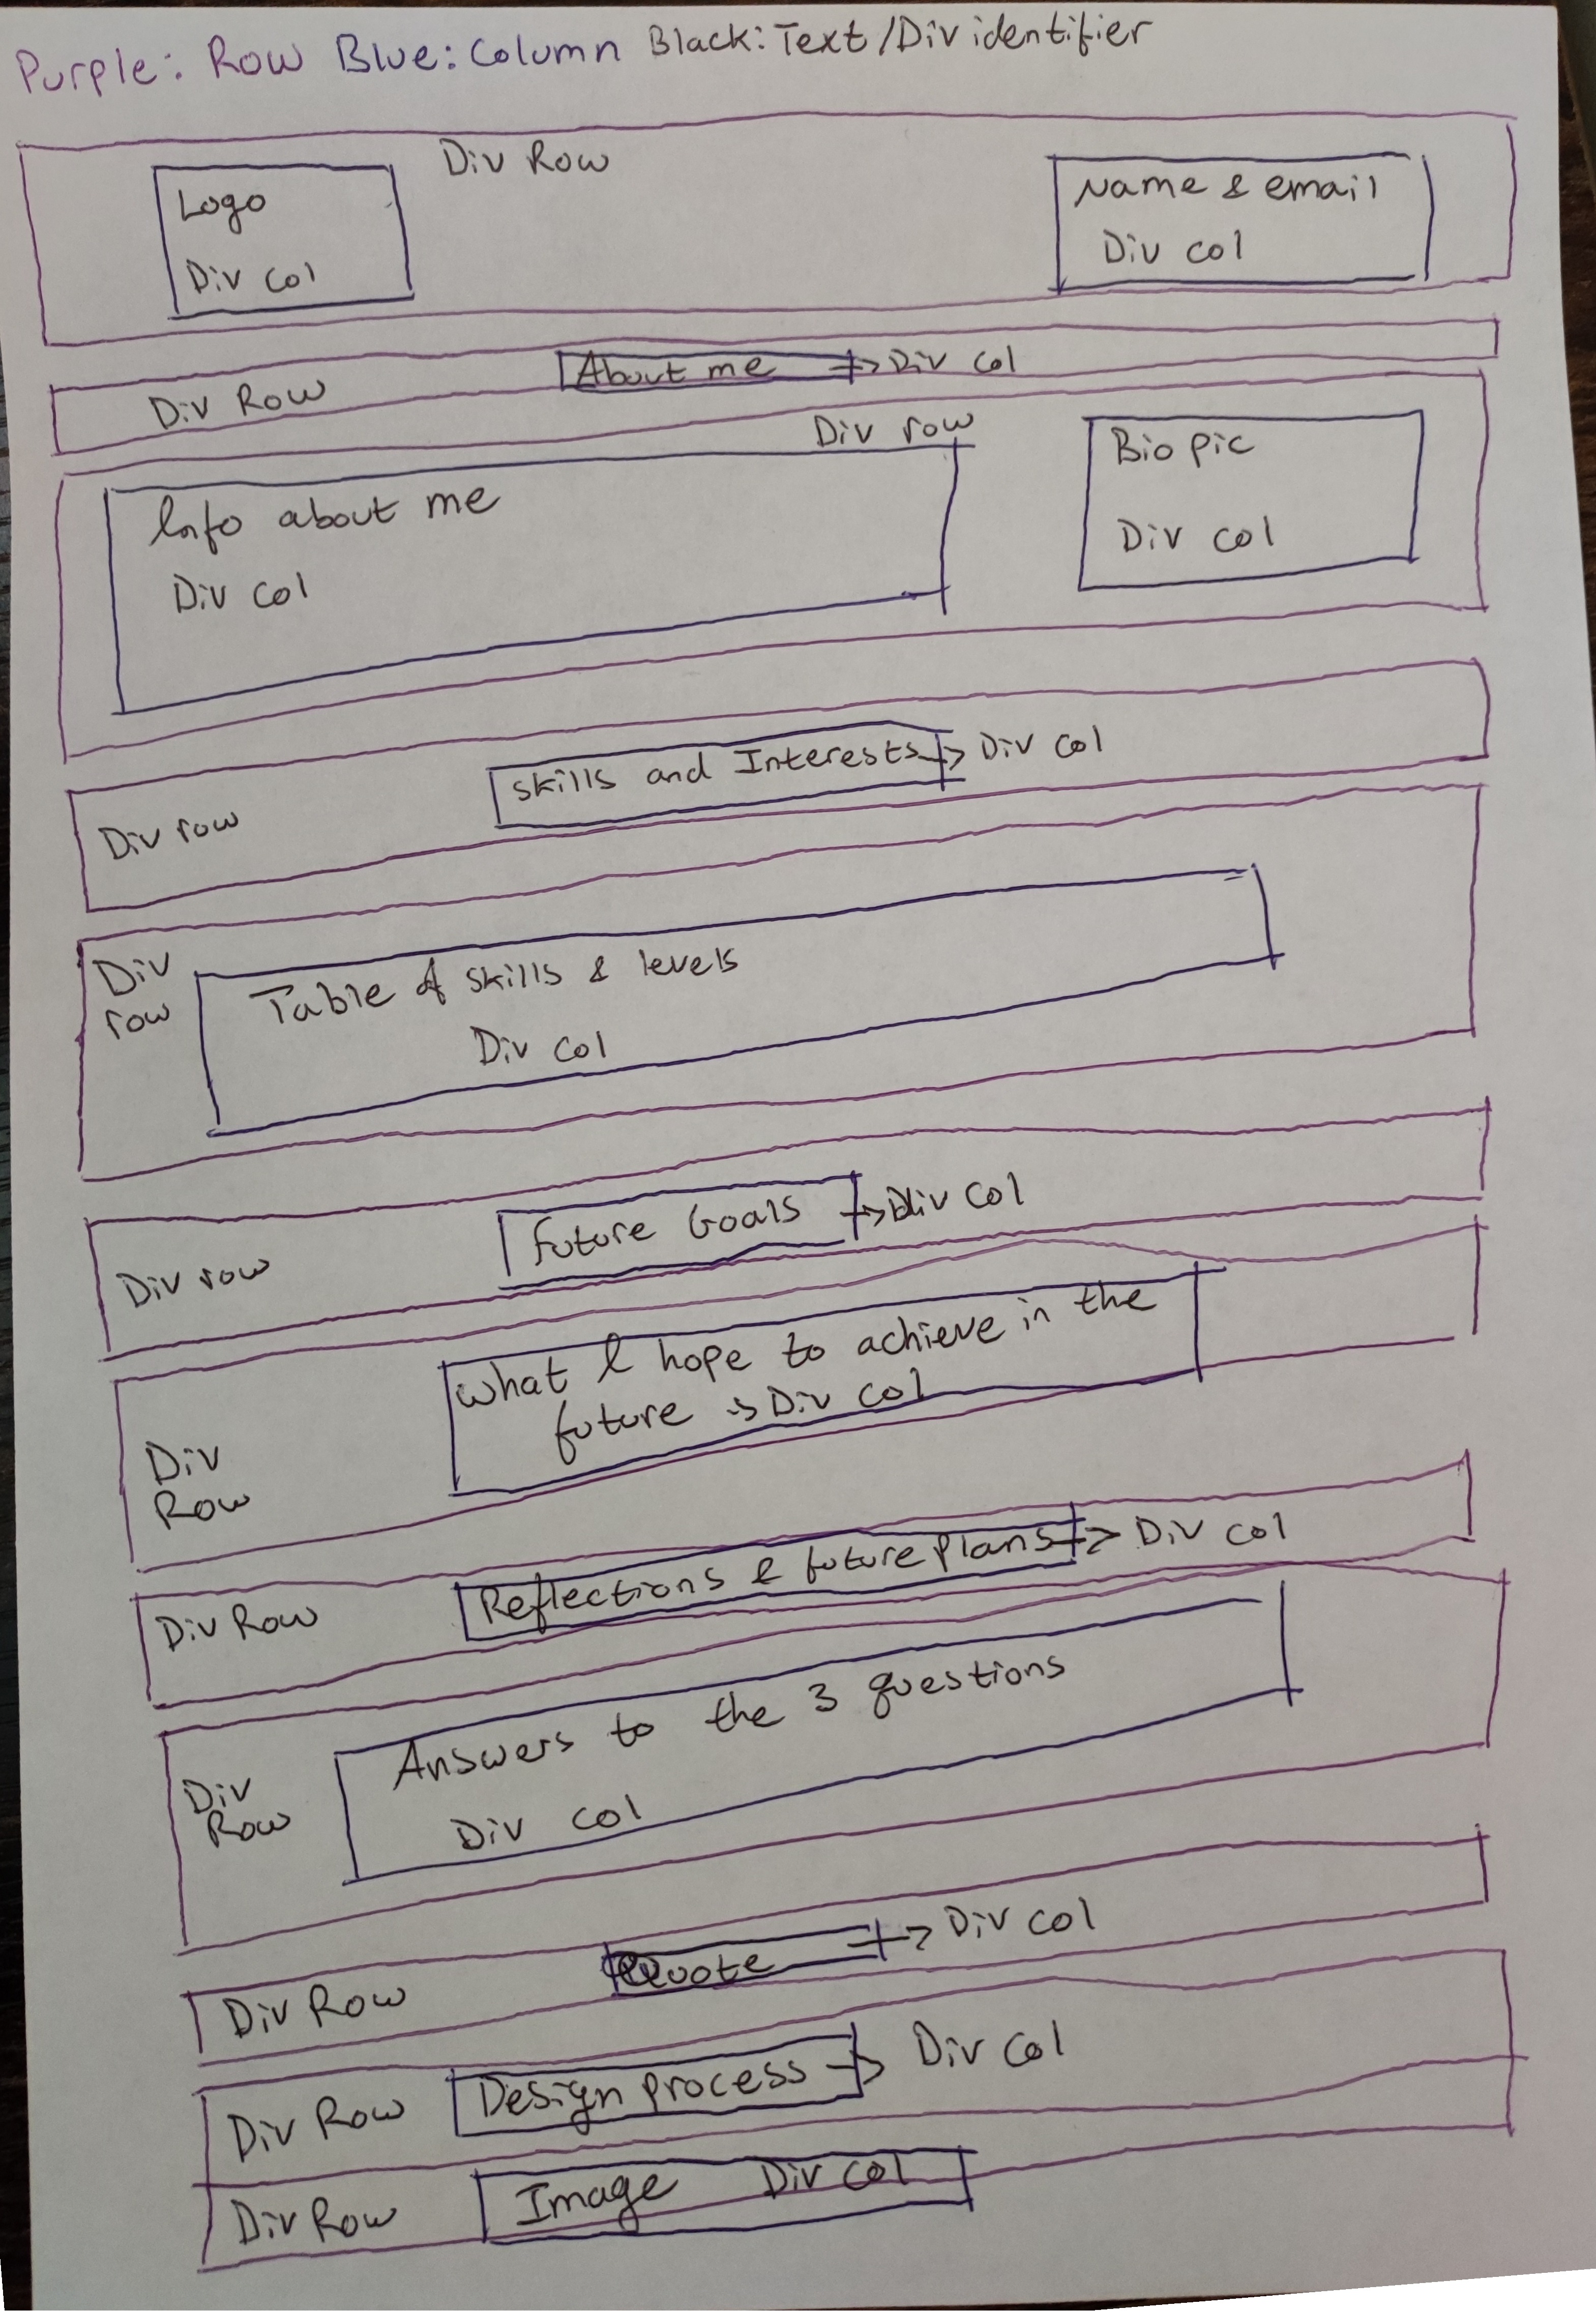 Purple: Row Blue: Column Black: Text/Div identifier
Div Row
Logo
Div col
Name & email
Div col
About me -> Div col
Div Row
Div row
Info about me
Div col
Bio pic
Div col
Skills and Interests -> Div col
Div row
Div
row
Table of skills & levels
Div col
Future Goals -> Div col
Div row
What I hope to achieve in the
future -> Div col
Div
Row
Reflections & future plans -> Div col
Div Row
Answers to the 3 questions
Div col
Div
Row
Quote -> Div col
Div Row
Design process -> Div col
Div Row
Image Div col
Div Row